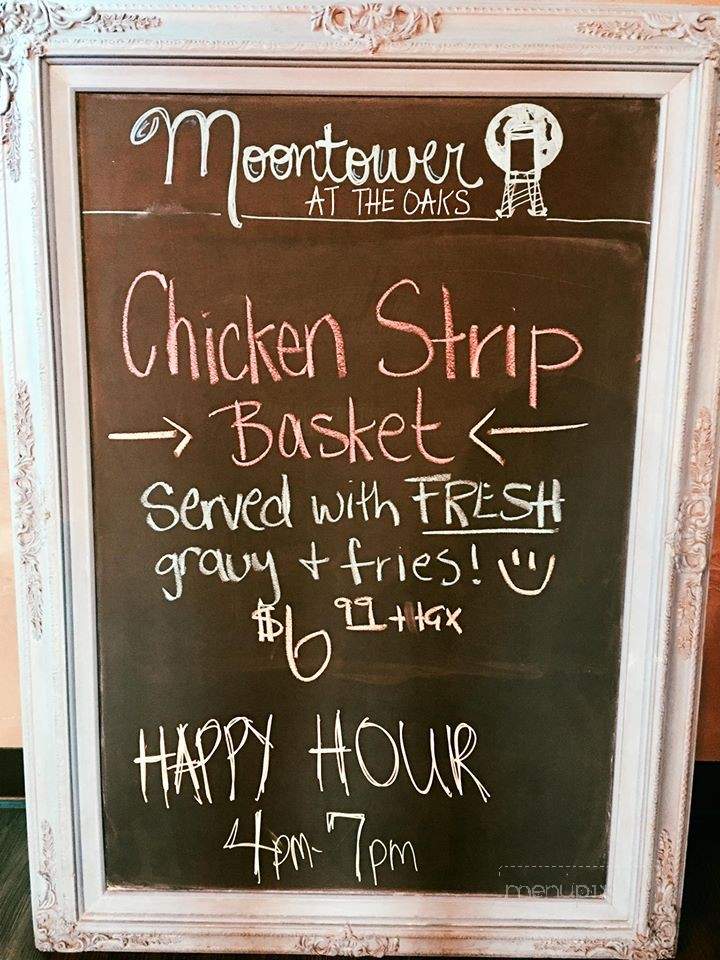 Moontower
AT THE OAKS
Chicken Strip
→ Basket ←
Served with FRESH
gravy + fries!
$6 99 + tax
HAPPY HOUR
4pm-7pm
menupix